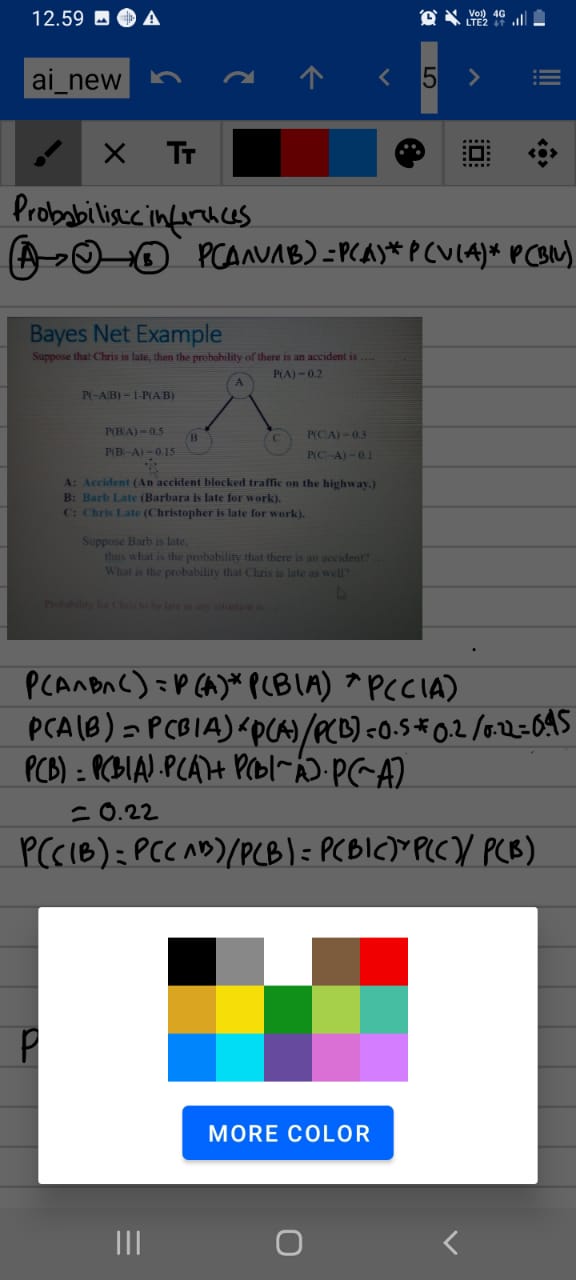 12.59 Vo) 4G LTE2
ai_new 5
TT
Probabilistic inferences
A→V→B P(A∩V∩B)=P(A)*P(V|A)*P(B|V)
Bayes Net Example
Suppose that Chris is late, then the probability of there is an accident is ....
P(A) = 0.2
A
P(~A|B) = 1-P(A|B)
P(B|A) = 0.5 B C P(C|A) = 0.3
P(B|~A) = 0.15 P(C|~A) = 0.1
A: Accident (An accident blocked traffic on the highway.)
B: Barb Late (Barbara is late for work).
C: Chris Late (Christopher is late for work).
Suppose Barb is late,
thus what is the probability that there is an accident? ...
What is the probability that Chris is late as well?
Probability for Chris to be late in any situation is
P(A∩B∩C)=P(A)*P(B|A)*P(C|A)
P(A|B)=P(B|A)*P(A)/P(B)=0.5*0.2/0.22=0.45
P(B)=P(B|A).P(A)+P(b|~A).P(~A)
=0.22
P(C|B)=P(C∩B)/P(B)=P(B|C)*P(C)/P(B)
P
MORE COLOR